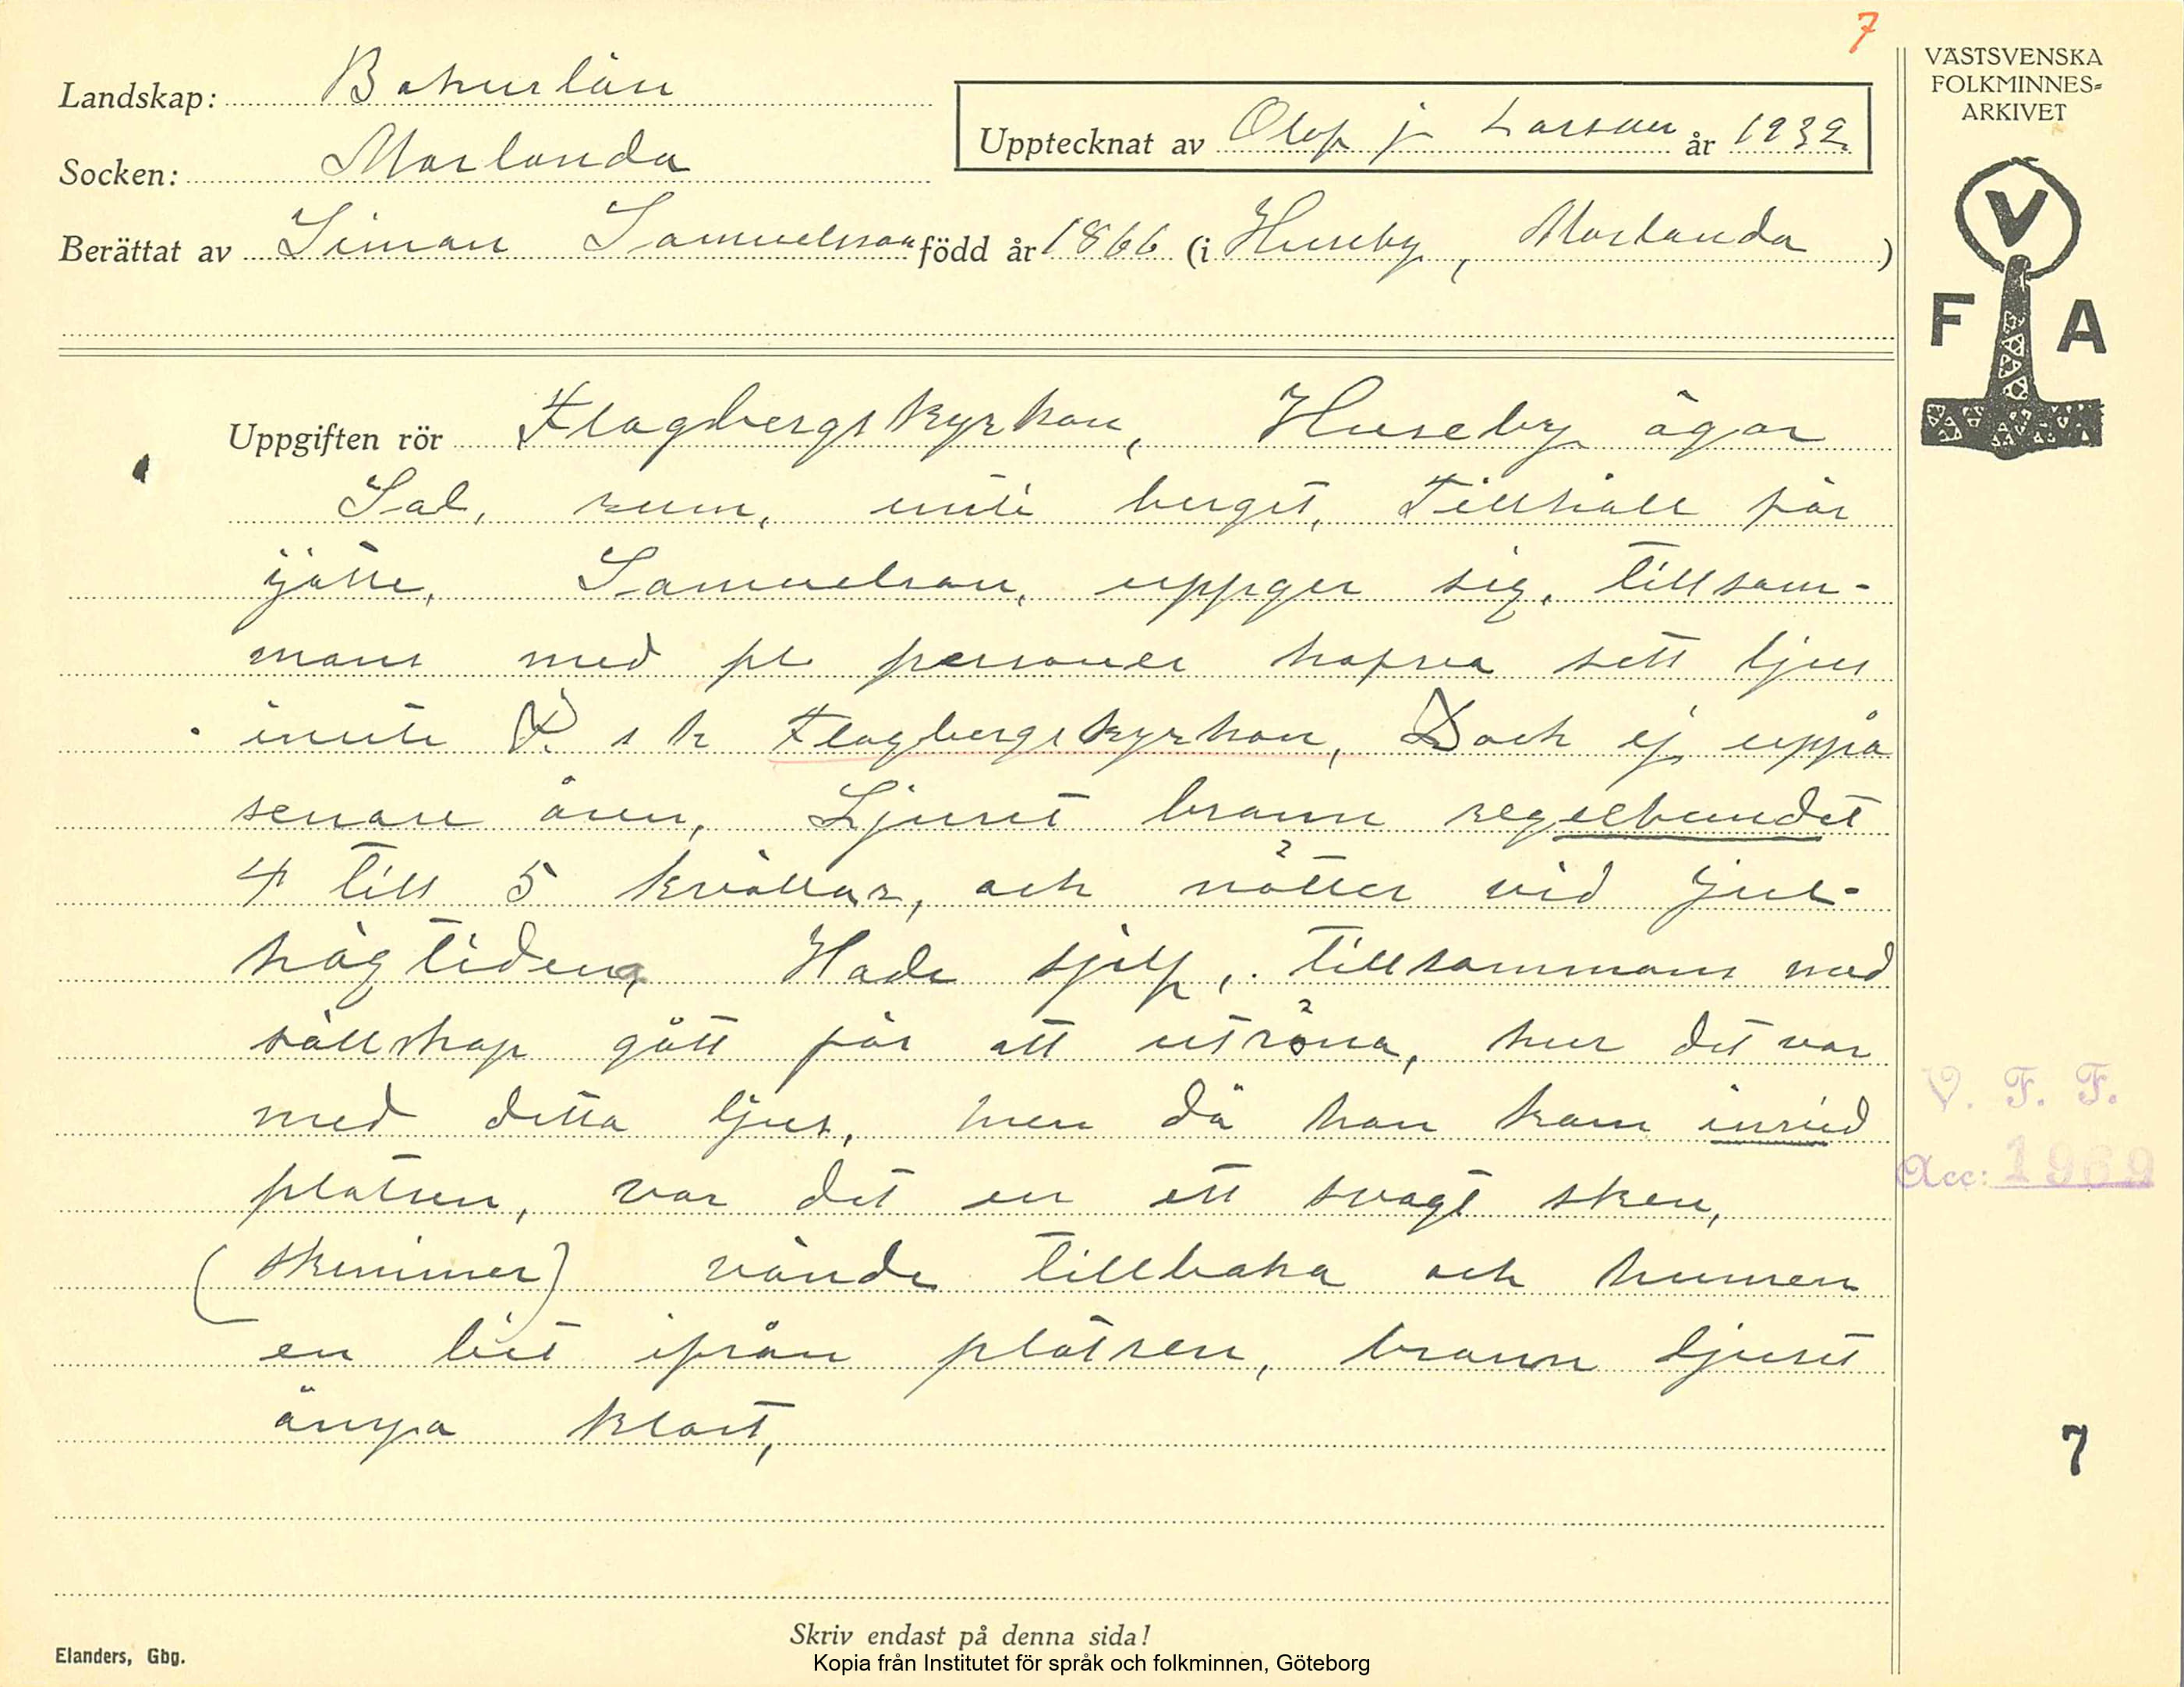 7
Landskap: Bohuslän
Socken: Morlanda
Upptecknat av Olof j Larsson år 1932
Berättat av Simon Samuelsson född år 1866 (i Huseby, Morlanda)
VÄSTSVENSKA
FOLKMINNES-
ARKIVET
V
F A
Uppgiften rör Flagbergskyrkan, Huseby ägor
Sal, rum, inuti berget, Tillhåll för
jätte, Samuelson, uppger sig, tillsam-
mans med fl personer hafva sett ljus
inuti d. s k Flagbergskyrkan, Dock ej uppå
senare åren, Ljuset brann regelbundet
4 till 5 kvällar, och nätter vid jul-
högtiden, Hade sjelf, tillsammans med
sällskap gått för att utröna, hur det var
med detta ljus, men då han kom invid
platsen, var det en ett svagt sken,
(skimmer) vände tillbaka och kummen
en bit ifrån platsen, brann ljuset
änya klart,
V. F. F.
Acc: 1969
7
Skriv endast på denna sida!
Elanders, Gbg.
Kopia från Institutet för språk och folkminnen, Göteborg